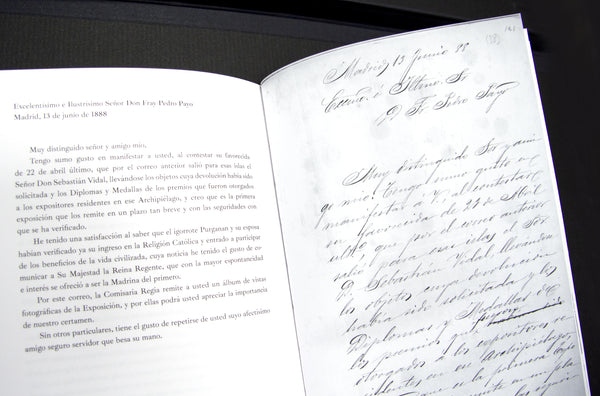 Excelentísimo e Ilustrísimo Señor Don Fray Pedro Payo
Madrid, 13 de junio de 1888
Muy distinguido señor y amigo mío,
Tengo sumo gusto en manifestar a usted, al contestar su favorecida
de 22 de abril último, que por el correo anterior salió para esas islas el
Señor Don Sebastián Vidal, llevándose los objetos cuya devolución había sido
solicitada y los Diplomas y Medallas de los premios que fueron otorgados
a los expositores residentes en ese Archipiélago, y creo que es la primera
exposición que los remite en un plazo tan breve y con las seguridades con
que se ha verificado.
He tenido una satisfacción al saber que el igorrote Purganan y su esposa
habían verificado ya su ingreso en la Religión Católica y entrado a participar
de los beneficios de la vida civilizada, cuya noticia he tenido el gusto de co-
municar a Su Majestad la Reina Regente, que con la mayor espontaneidad
e interés se ofreció a ser la Madrina del primero.
Por este correo, la Comisaría Regia remite a usted un álbum de vistas
fotográficas de la Exposición, y por ellas podrá usted apreciar la importancia
de nuestro certamen.
Sin otros particulares, tiene el gusto de repetirse de usted suyo afectísimo
amigo seguro servidor que besa su mano.
Madrid 13 Junio 88
Excmo. é Iltmo. Sr
D Fr. Pedro Payo
Muy distinguido Sr. y ami
go mio: Tengo sumo gusto en
manifestar a V., al contestar
su favorecida de 22 de Abril
último, que por el correo anterior
salió para esas islas el Sor
D. Sebastian Vidal llevándose
los objetos cuya devolucion
habia sido solicitada y los
Diplomas y Medallas de
los premios que fueron
otorgados a los expositores re
sidentes en ese Archipiélago,
y creo que es la primera Expo